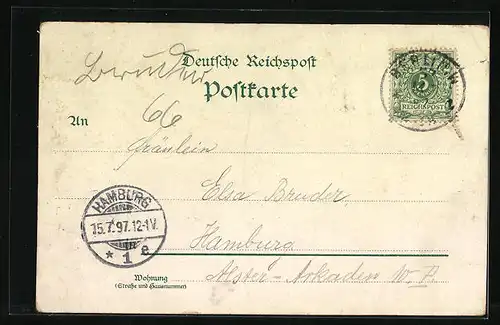 Deutsche Reichspost
Bruder
Postkarte
66
An
BERLIN W
5
REICHSPOST
Fräulein
Elsa Bruder
HAMBURG
15.7.97.12-1V.
* 1 e
Hamburg
Alster-Arkaden
Wohnung
(Straße und Hausnummer)